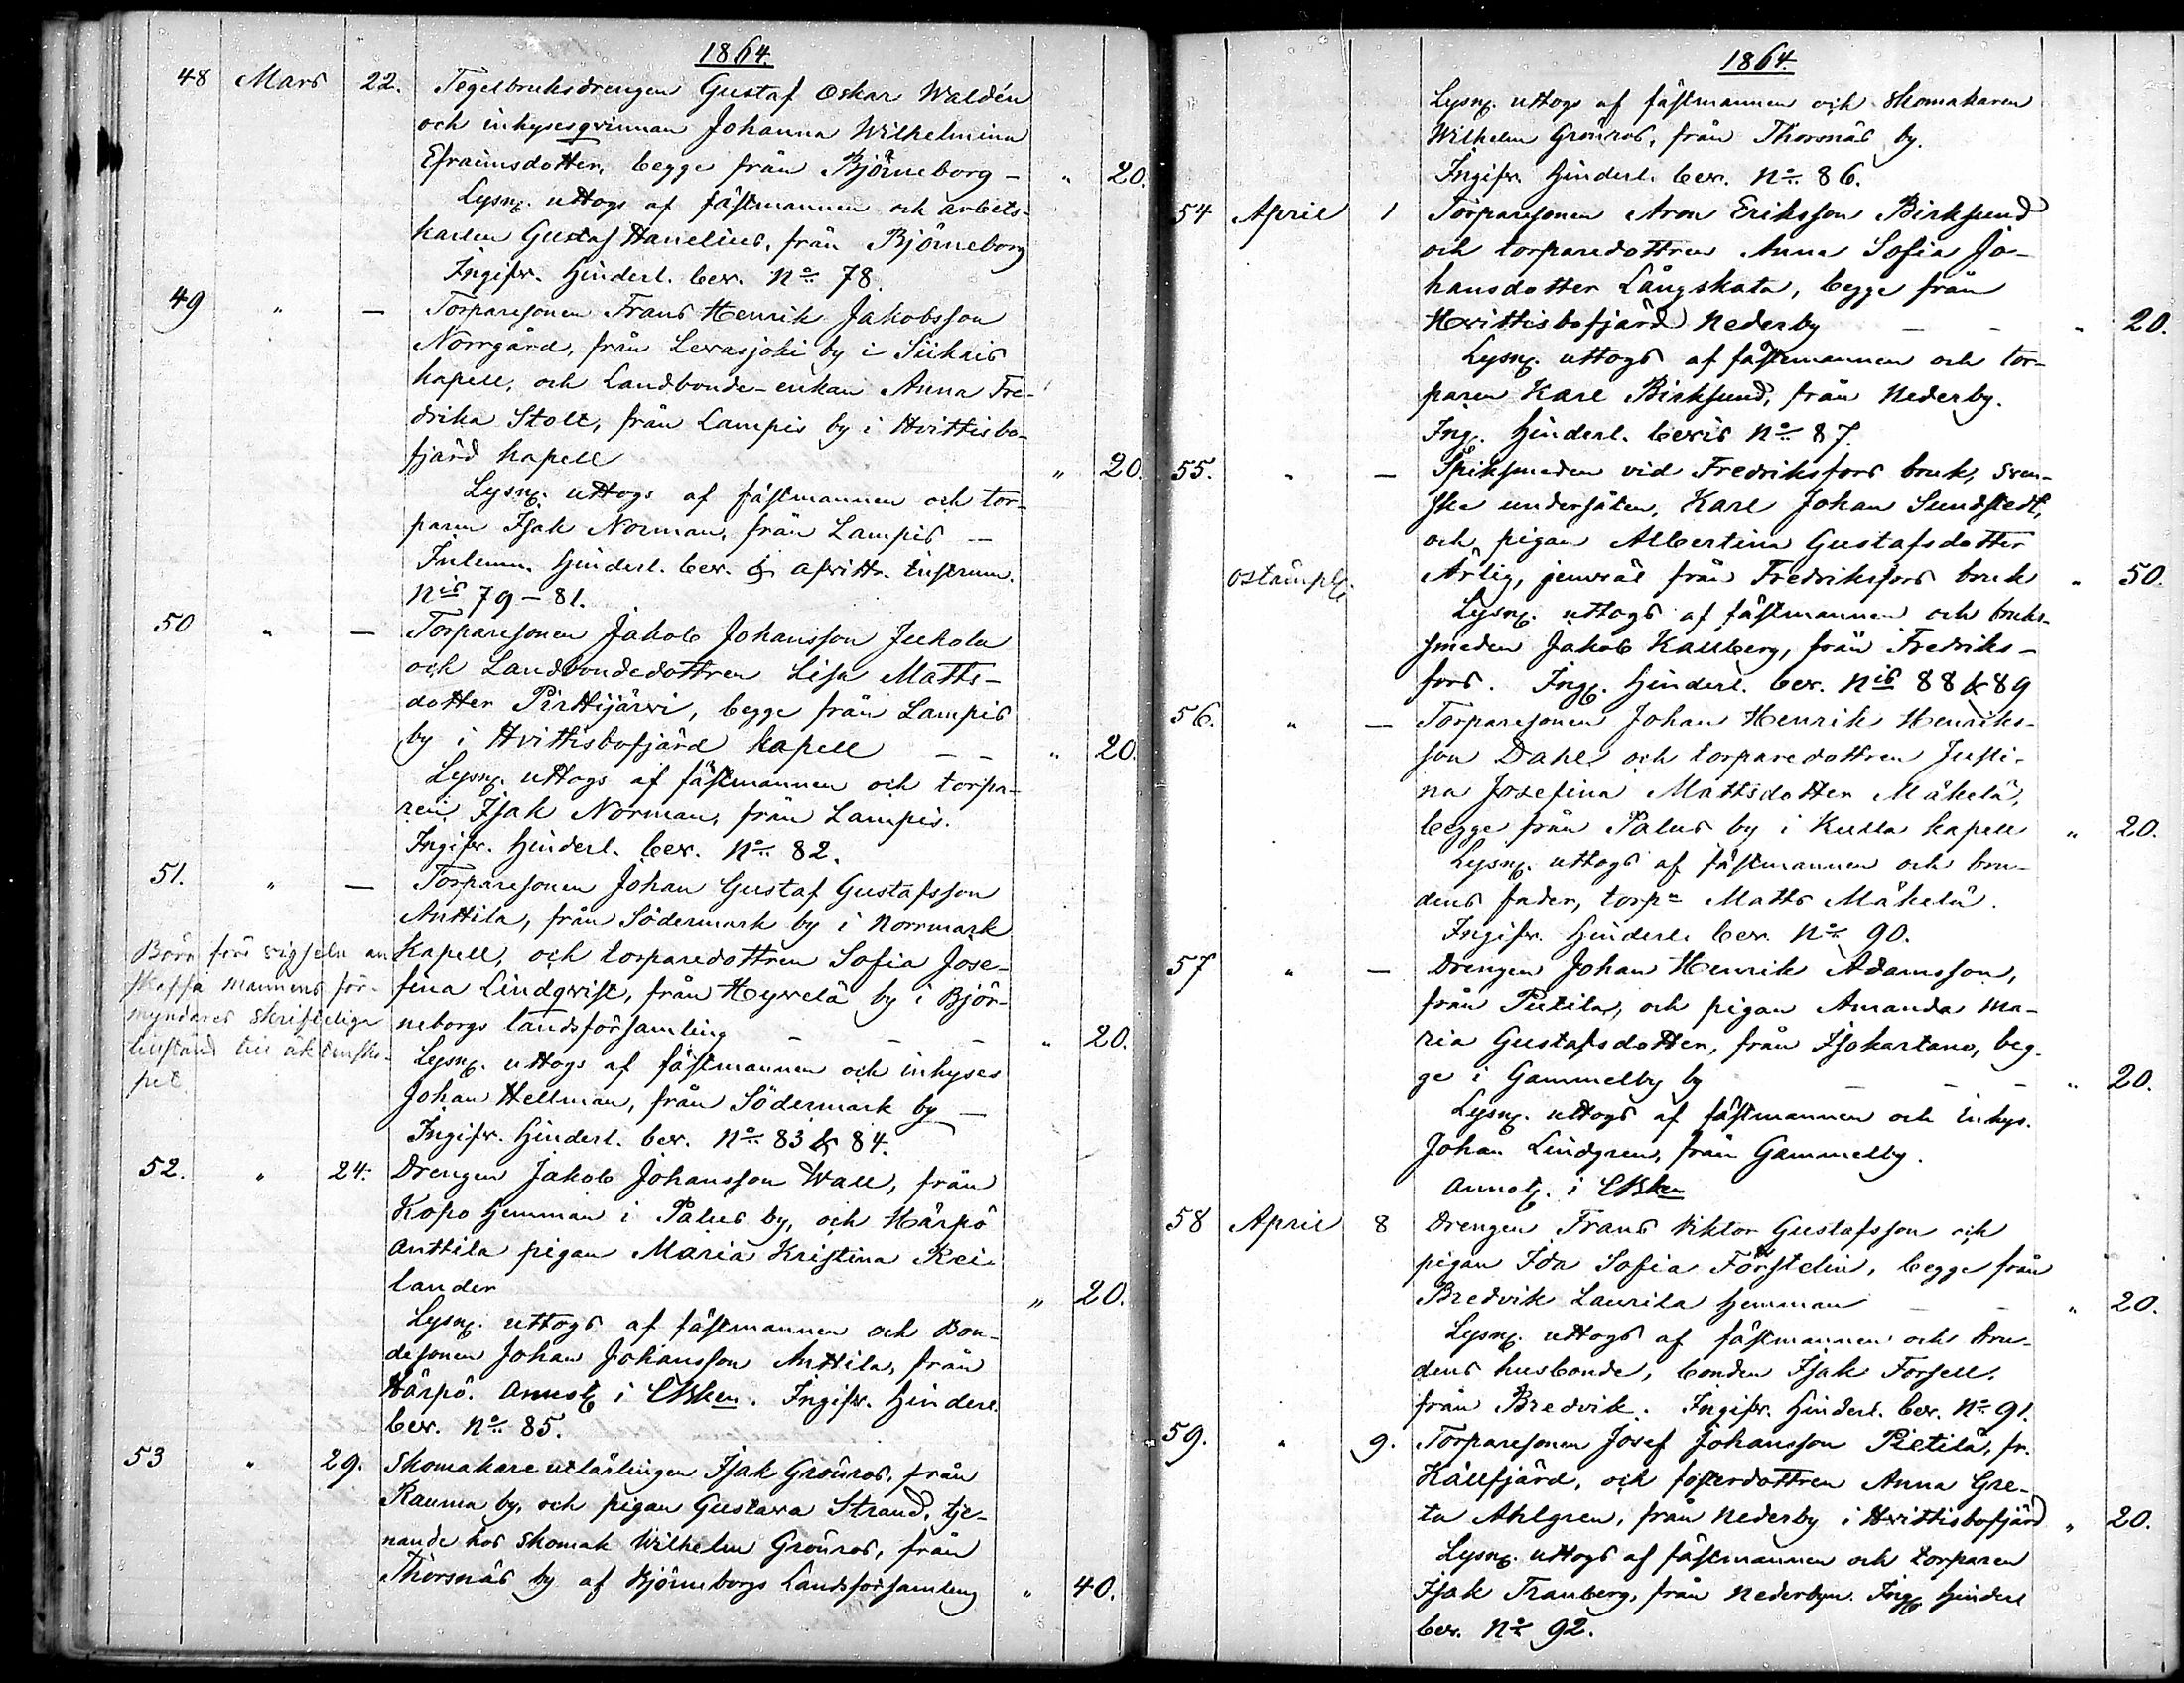 1864.
48 Mars 22. Tegelbruksdrengen Gustaf Oskar Waldén
och inhysesqvinnan Johanna Wilhelmina
Efraimsdotter, begge från Björneborg - " 20.
Lysng. uttogs af fästmannen och arbets-
karlen Gustaf Hanelius, från Björneborg
Ingifv. hinderl. bev. No. 78.
49 " — Torparesonen Frans Henrik Jakobsson
Norrgård, från Levasjoki by i Siikais
kapell, och Landbonde-enkan Anna Fre-
drika Stolt, från Lampis by i Hvittisbo-
fjärd kapell " 20.
Lysng. uttogs af fästmannen och tor-
paren Isak Norman, från Lampis —
Inlemn. hinderl. bev. & afvittr. instrum.
Nis 79-81.
50 " — Torparesonen Jakob Johansson Juhola
och Landbondedottren Lisa Matts-
dotter Pirttijärvi, begge från Lampis
by i Hvittisbofjärd kapell — — " 20.
Lysng. uttogs af fästmannen och torpa-
ren Isak Norman, från Lampis.
Ingifv. hinderl. bev. No. 82.
51. " — Torparesonen Johan Gustaf Gustafsson
Anttila, från Södermark by i Norrmark
kapell, och torparedottren Sofia Jose-
fina Lindqvist, från Heyvelä by i Björ-
neborgs landsförsamling - - - " 20.
Börn före vigseln an
skaffa mannens för-
myndares skriftliga
tillstånd till äktenska-
pet.
Lysng. uttogs af fästmannen och inhyses
Johan Hellman, från Södermark by —
Ingifv. hinderl. bev. No. 83 & 84.
52. " 24. Drengen Jakob Johansson Wall, från
Kopo hemman i Palus by, och Härpö
Anttila pigan Maria Kristina Rei-
lander " 20.
Lysng. uttogs af fästmannen och Bon-
desonen Johan Johansson Anttila, från
Härpö. Annotg i . Ingifv. hinderl.
bev. No. 85.
53 " 29. Skomakare utlärlingen Isak Grönros, från
Rauma by, och pigan Gustava Strand, tje-
nande hos skomak Wilhelm Grönros, från
Thorsnäs by af Björneborgs Landsförsamling " 40.
1864.
Lysng. uttogs af fästmannen och skomakaren
Wilhelm Grönros, från Thorsnäs by.
Ingifv. hinderl. bev. No. 86.
54 April 1 Torparesonen Aron Eriksson Birksund
och torparedottren Anna Sofia Jo-
hansdotter Långskata, begge från
Hvittisbofjärd Nederby — - " 20.
Lysng. uttogs af fästmannen och tor-
paren Karl Birksund, från Nederby.
Ing. hinderl. bevis No. 87.
55. " — Spiksmeden vid Fredriksfors bruk, sven-
ske undersåten, Karl Johan Sundstedt,
och pigan Albertina Gustafsdotter
ostämpl. Ärlig, jemväl från Fredriksfors bruk " 50.
Lysng. uttogs af fästmannen och bruks-
smeden Jakob Kallberg, från Fredriks-
fors. Ingg. hinderl. bev. Nis 88 & 89
56. " — Torparesonen Johan Henrik Henriks-
son Dahl och torparedottren Justi-
na Josefina Mattsdotter Mäkelä,
begge från Palus by i Kulla kapell " 20.
Lysng. uttogs af fästmannen och bru-
dens fader, torpn Matts Mäkelä.
Ingifv. hinderl. bev. No. 90.
57 " — Drengen Johan Henrik Adamsson,
från Pietila, och pigan Amanda Ma-
ria Gustafsdotter, från Isokartano, beg-
ge i Gammelby by — - - " 20.
Lysng. uttogs af fästmannen och inhys.
Johan Lindgren, från Gammelby.
Annotg. i
58 April 8 Drengen Frans Viktor Gustafsson och
pigan Ida Sofia Förstelin, begge från
Bredvik Laurila hemman — - " 20.
Lysng. uttogs af fästmannen och bru-
dens husbonde, bonden Isak Forsell,
från Bredvik. Ingifv. hinderl. bev. No. 91.
59. " 9. Torparesonen Josef Johansson Pietilä, fr.
Källfjärd, och fosterdottren Anna Gre-
ta Ahlgren, från Nederby i Hvittisbofjärd " 20.
Lysng. uttogs af fästmannen och torparen
Isak Tranberg, från Nederbyn. Ingg hinderl
bev. No. 92.